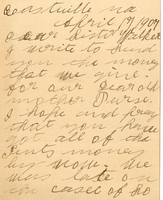 Eastville Va
April 19 1909
Dear Sister Walker
I write to send
you the money
that we give
for our dear old
mother Purse.
I hope and pray
that you have
got all of the
Cents money
by now. We
was late on